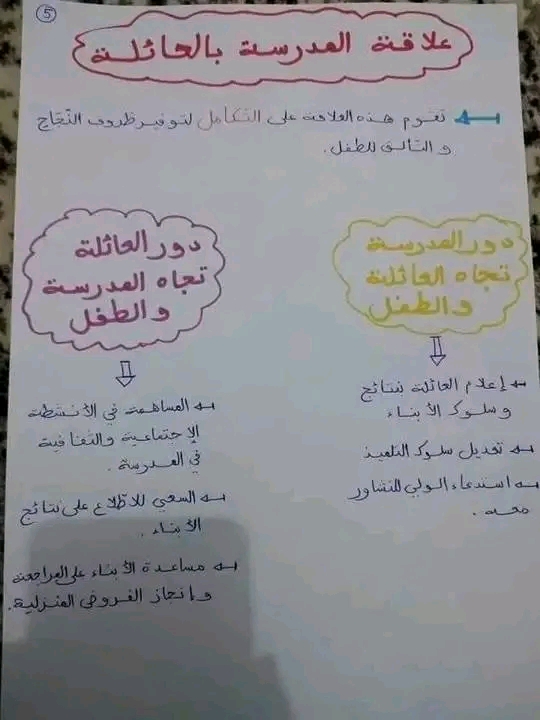 5
علاقة المدرسة بالعائلة
تقوم هذه العلاقة على التكامل لتوفير ظروف النّجاح
و التّألق للطفل.
دور المدرسة
تجاه العائلة
والطفل
إعلام العائلة نتائج
وسلوك الأبناء
تعديل سلوك التلميذ
استدعاء الولي للتشاور
معه.
دور العائلة
تجاه المدرسة
والطفل
المساهمة في الأنشطة
الإجتماعية والثقافية
في المدرسة.
السعي للاطّلاع على نتائج
الأبناء.
مساعدة الأبناء على المراجعة
وإنجاز الفروض المنزلية.